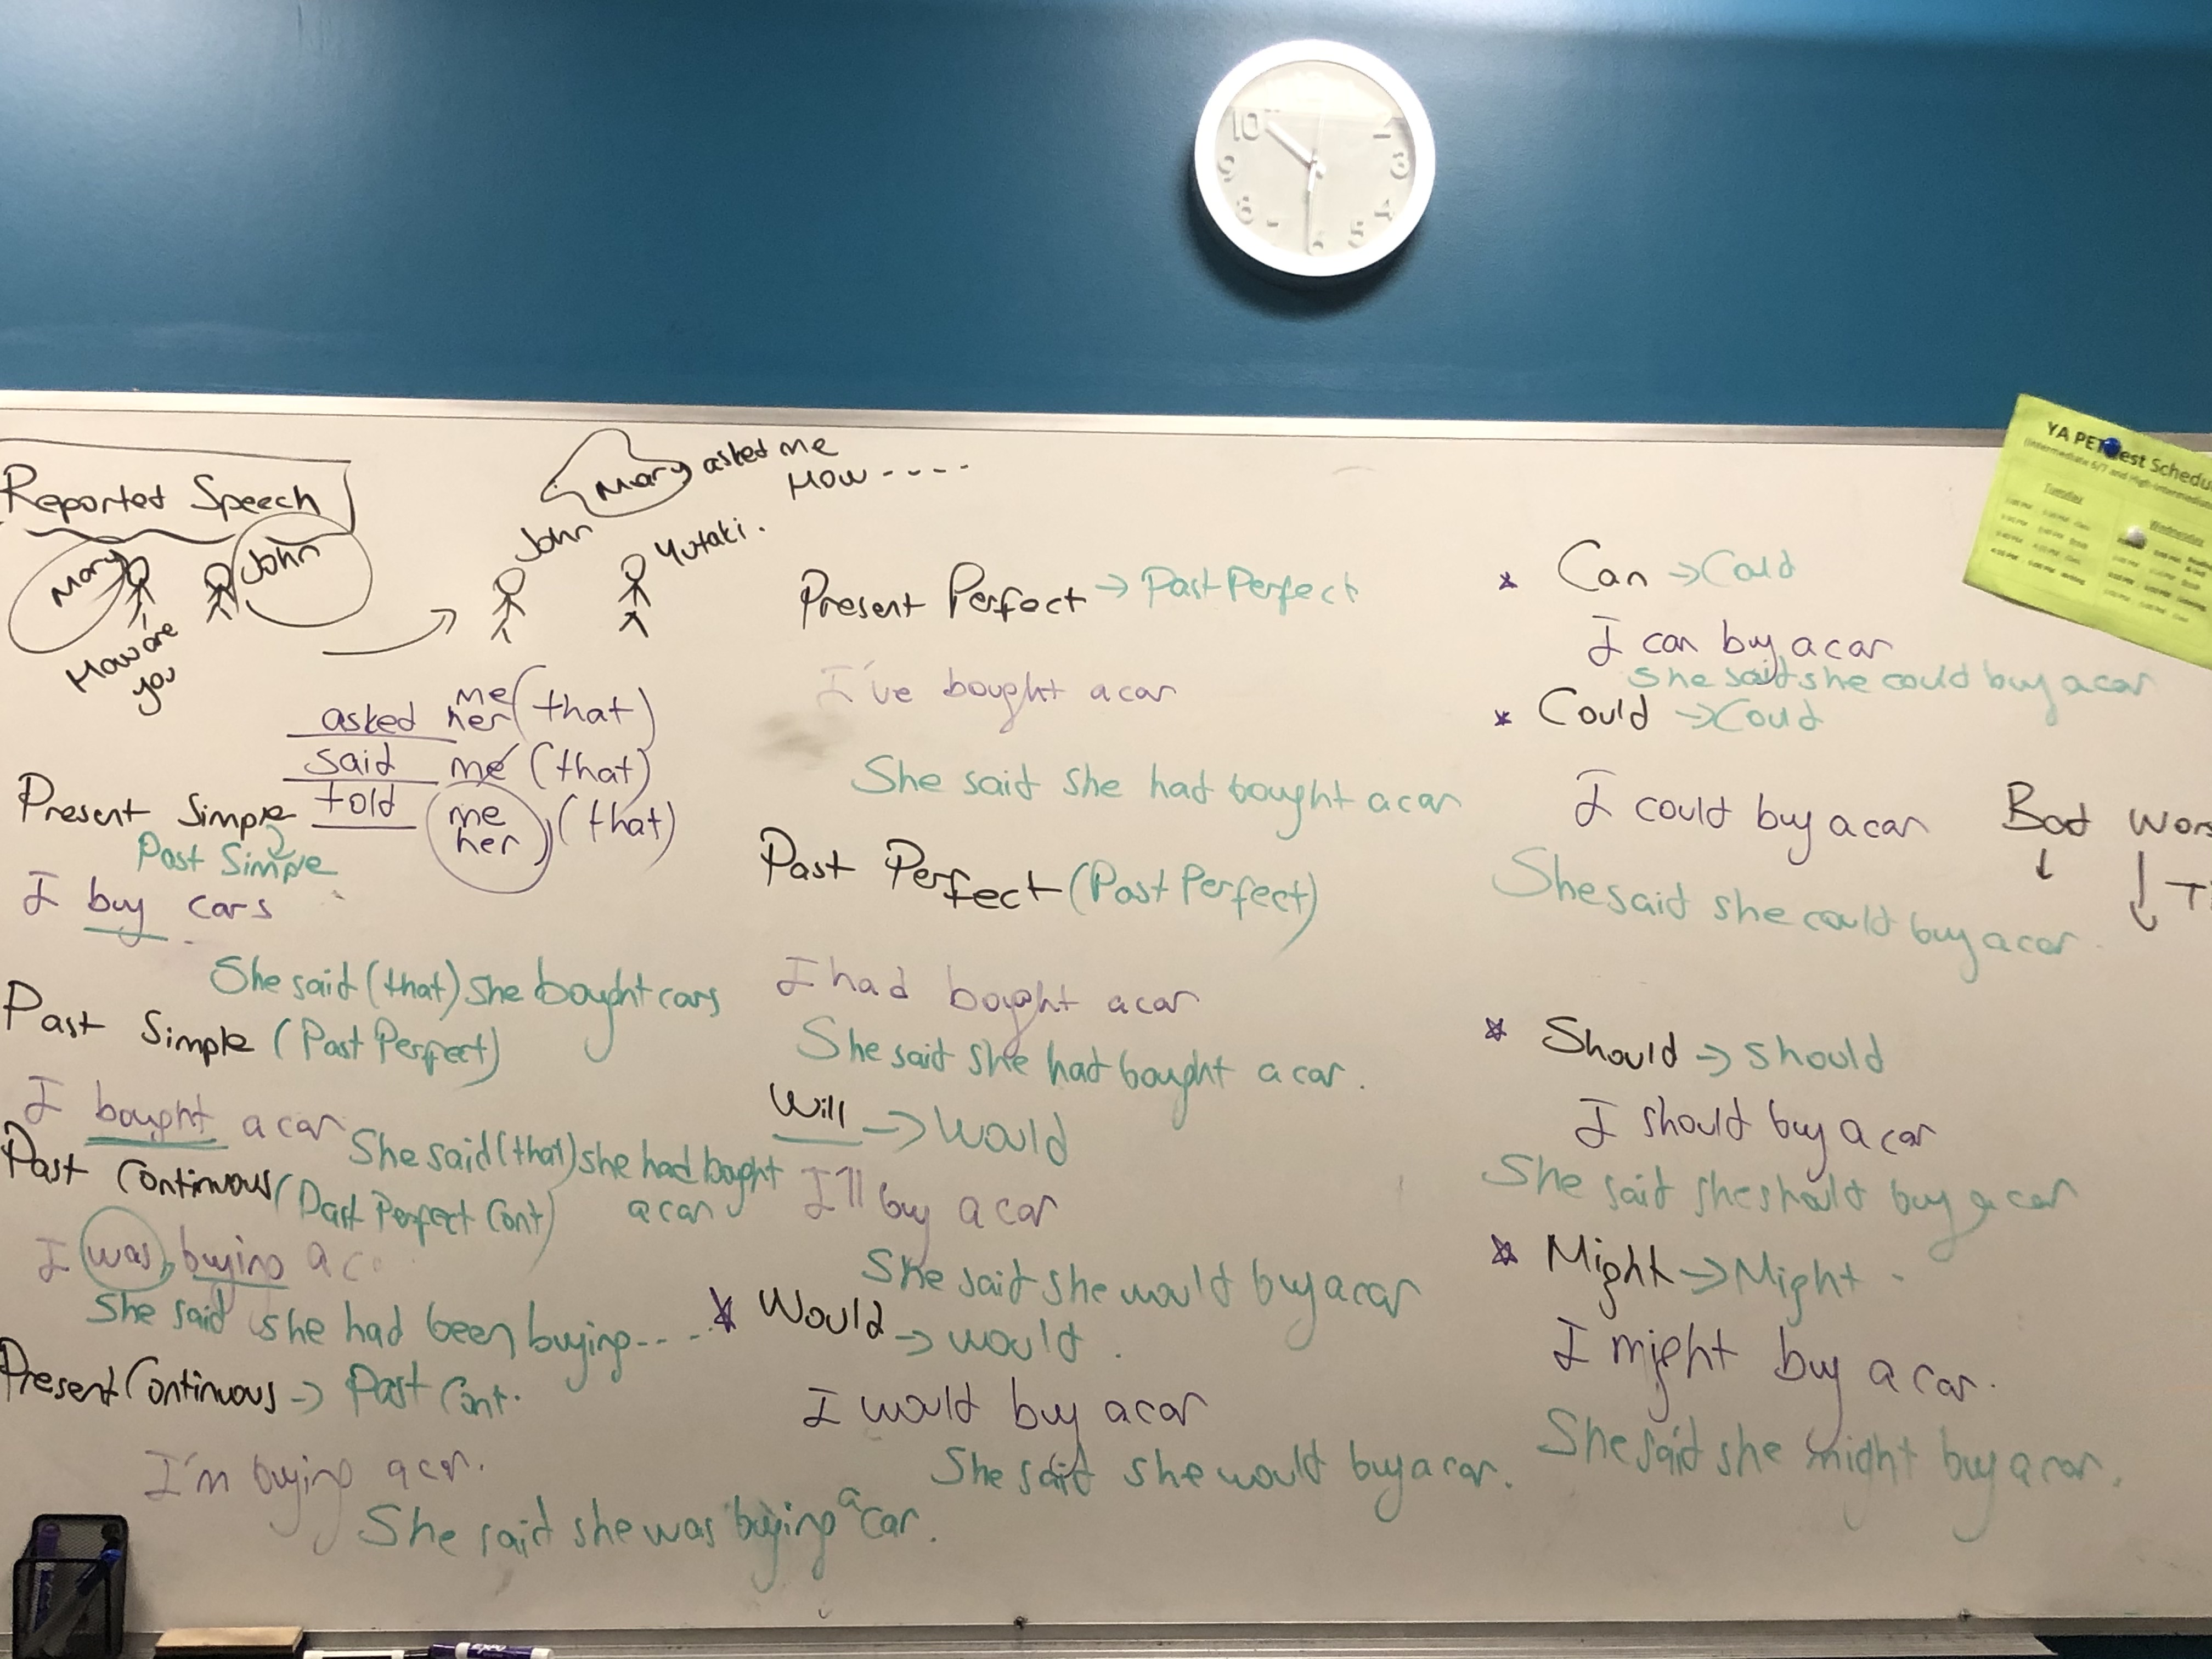 10
9
8
6
5
4
3
YA PET Test Schedu
(Intermediate 6/7 and High-Intermediate
Tuesday
Wednesday
Reported Speech
Mary
John
How are
you
Mary asked me
How - - - -
John
Yutaki.
asked me (that)
her
said me (that)
told me (that)
her
Present Simple
Past Simple
I buy cars
She said (that) she bought cars
Past Simple (Past Perfect)
I bought a car
She said (that) she had bought
a car
Past Continuous (Past Perfect Cont)
I was buying a c
She said she had been buying - - - -
Present Continuous -> Past Cont.
I'm buying a car.
She said she was buying a car.
Present Perfect -> Past Perfect
I've bought a car
She said she had bought a car
Past Perfect (Past Perfect)
I had bought a car
She said she had bought a car.
Will -> Would
I'll buy a car
She said she would buy a car
* Would -> would.
I would buy a car
She said she would buy a car.
* Can -> Could
I can buy a car
She said she could buy a car
* Could -> Could
I could buy a car
She said she could buy a car.
* Should -> should
I should buy a car
She said she should buy a car
* Might -> Might
I might buy a car.
She said she might buy a car.
Bad Wors